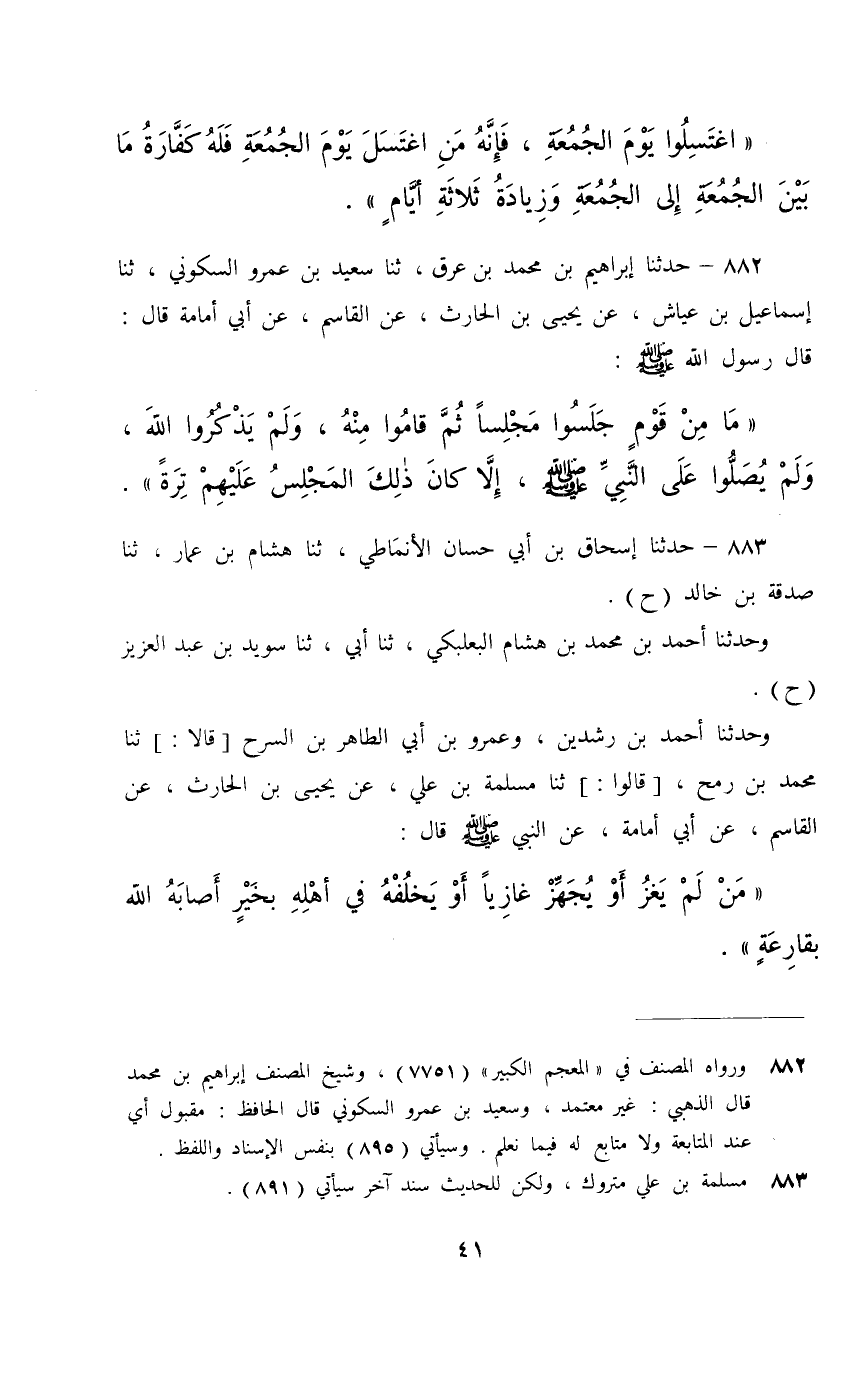 « اغتَسِلُوا يَوْمَ الجُمُعَةِ ، فَإِنَّهُ مَنِ اغتَسَلَ يَوْمَ الجُمُعَةِ فَلَهُ كَفَّارَةُ مَا
بَيْنَ الجُمُعَةِ إِلى الجُمُعَةِ وَزِيادَةُ ثَلاثَةِ أيَّامٍ » .
٨٨٢ – حدثنا إبراهيم بن محمد بن عرق ، ثنا سعيد بن عمرو السكوني ، ثنا
إسماعيل بن عياش ، عن يحيى بن الحارث ، عن القاسم ، عن أبي أمامة قال :
قال رسول الله ﷺ :
« مَا مِنْ قَوْمٍ جَلَسُوا مَجْلِساً ثُمَّ قامُوا مِنْهُ ، وَلَمْ يَذْكُرُوا اللهَ ،
وَلَمْ يُصَلُّوا عَلَى النَّبِيِّ ﷺ ، إِلَّا كانَ ذٰلِكَ المَجْلِسُ عَلَيْهِمْ تِرَةً » .
٨٨٣ – حدثنا إسحاق بن أبي حسان الأنمَاطي ، ثنا هشام بن عمار ، ثنا
صدقة بن خالد ( ح ) .
وحدثنا أحمد بن محمد بن هشام البعلبكي ، ثنا أبي ، ثنا سويد بن عبد العزيز
( ح ) .
وحدثنا أحمد بن رشدين ، وعمرو بن أبي الطاهر بن السرح [ قالا : ] ثنا
محمد بن رمح ، [ قالوا : ] ثنا مسلمة بن علي ، عن يحيى بن الحارث ، عن
القاسم ، عن أبي أمامة ، عن النبي ﷺ قال :
« مَنْ لَمْ يَغزُ أَوْ يُجَهِّزْ غازِياً أَوْ يَخلُفْهُ في أهْلِهِ بخَيْرٍ أَصابَهُ الله
بقارِعَةٍ » .
٨٨٢ ورواه المصنف في « المعجم الكبير » ( ٧٧٥١ ) ، وشيخ المصنف إبراهيم بن محمد
قال الذهبي : غير معتمد ، وسعيد بن عمرو السكوني قال الحافظ : مقبول أي
عند المتابعة ولا متابع له فيما نعلم . وسيأتي ( ٨٩٥ ) بنفس الإسناد واللفظ .
٨٨٣ مسلمة بن علي متروك ، ولكن للحديث سند آخر سيأتي ( ٨٩١ ) .
٤١